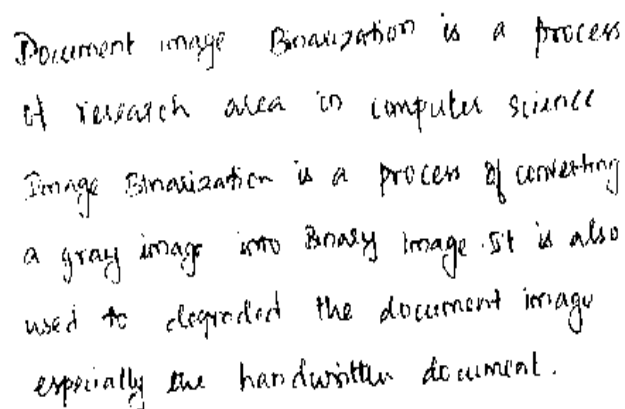 Document image Binarization is a process
of research area in computer science
Image Binarization is a process of converting
a gray image into Binary Image. It is also
used to degraded the document image
especially the handwritten document.